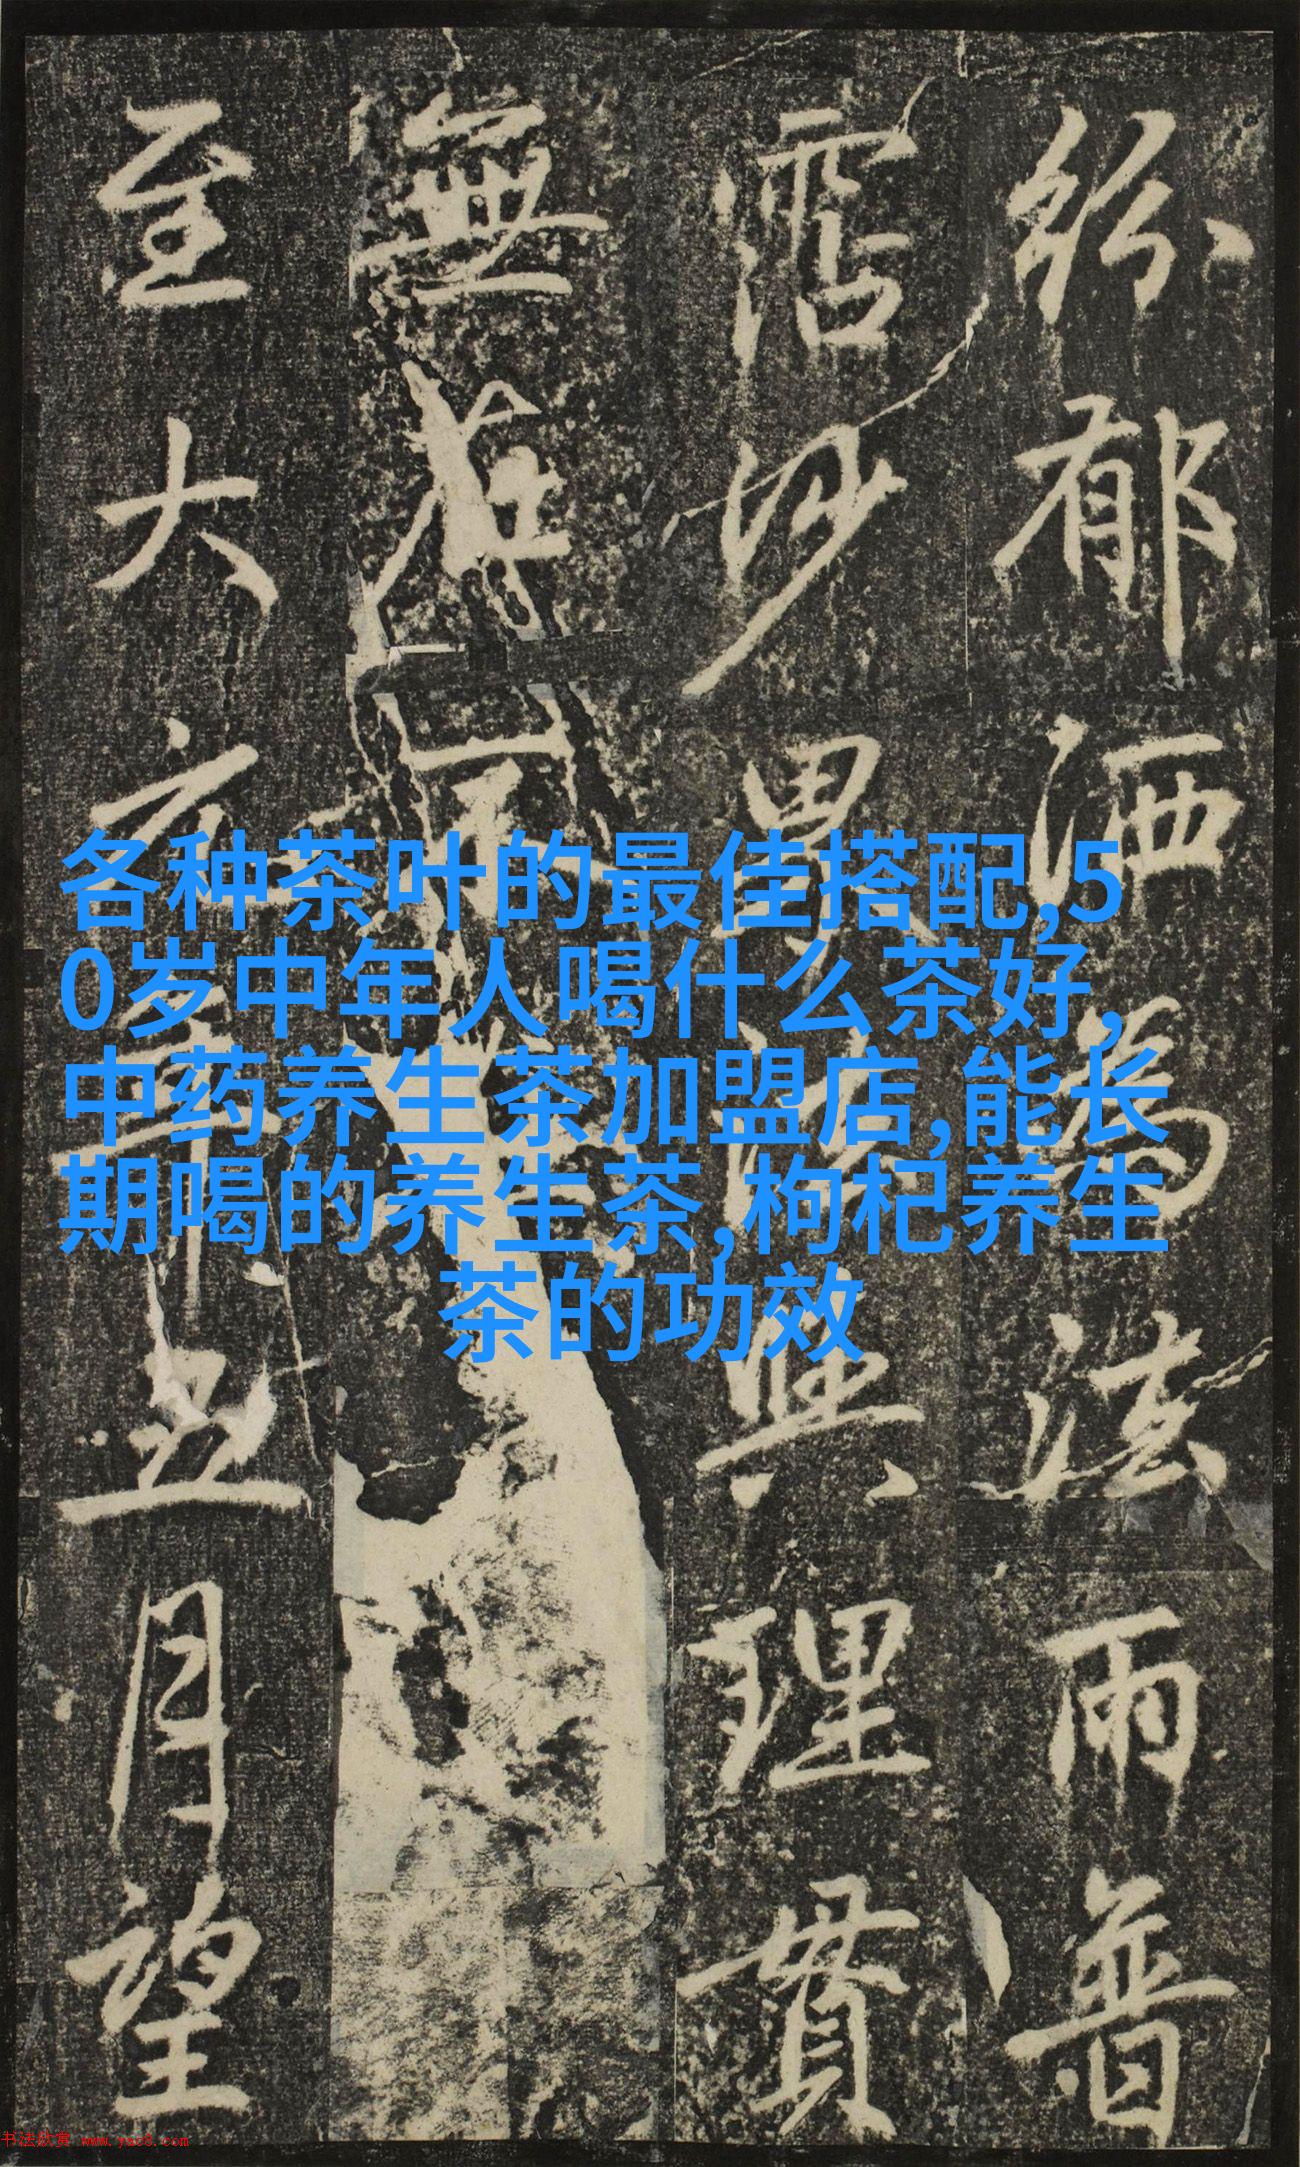 各种茶叶的最佳搭配,5
0岁中年人喝什么茶好,
中药养生茶加盟店,能长
期喝的养生茶,枸杞养生
茶的功效
紛郁洒為法雨普
霑妙果與理貫
無
至大年五月望
书法欣赏 www.yac8.com